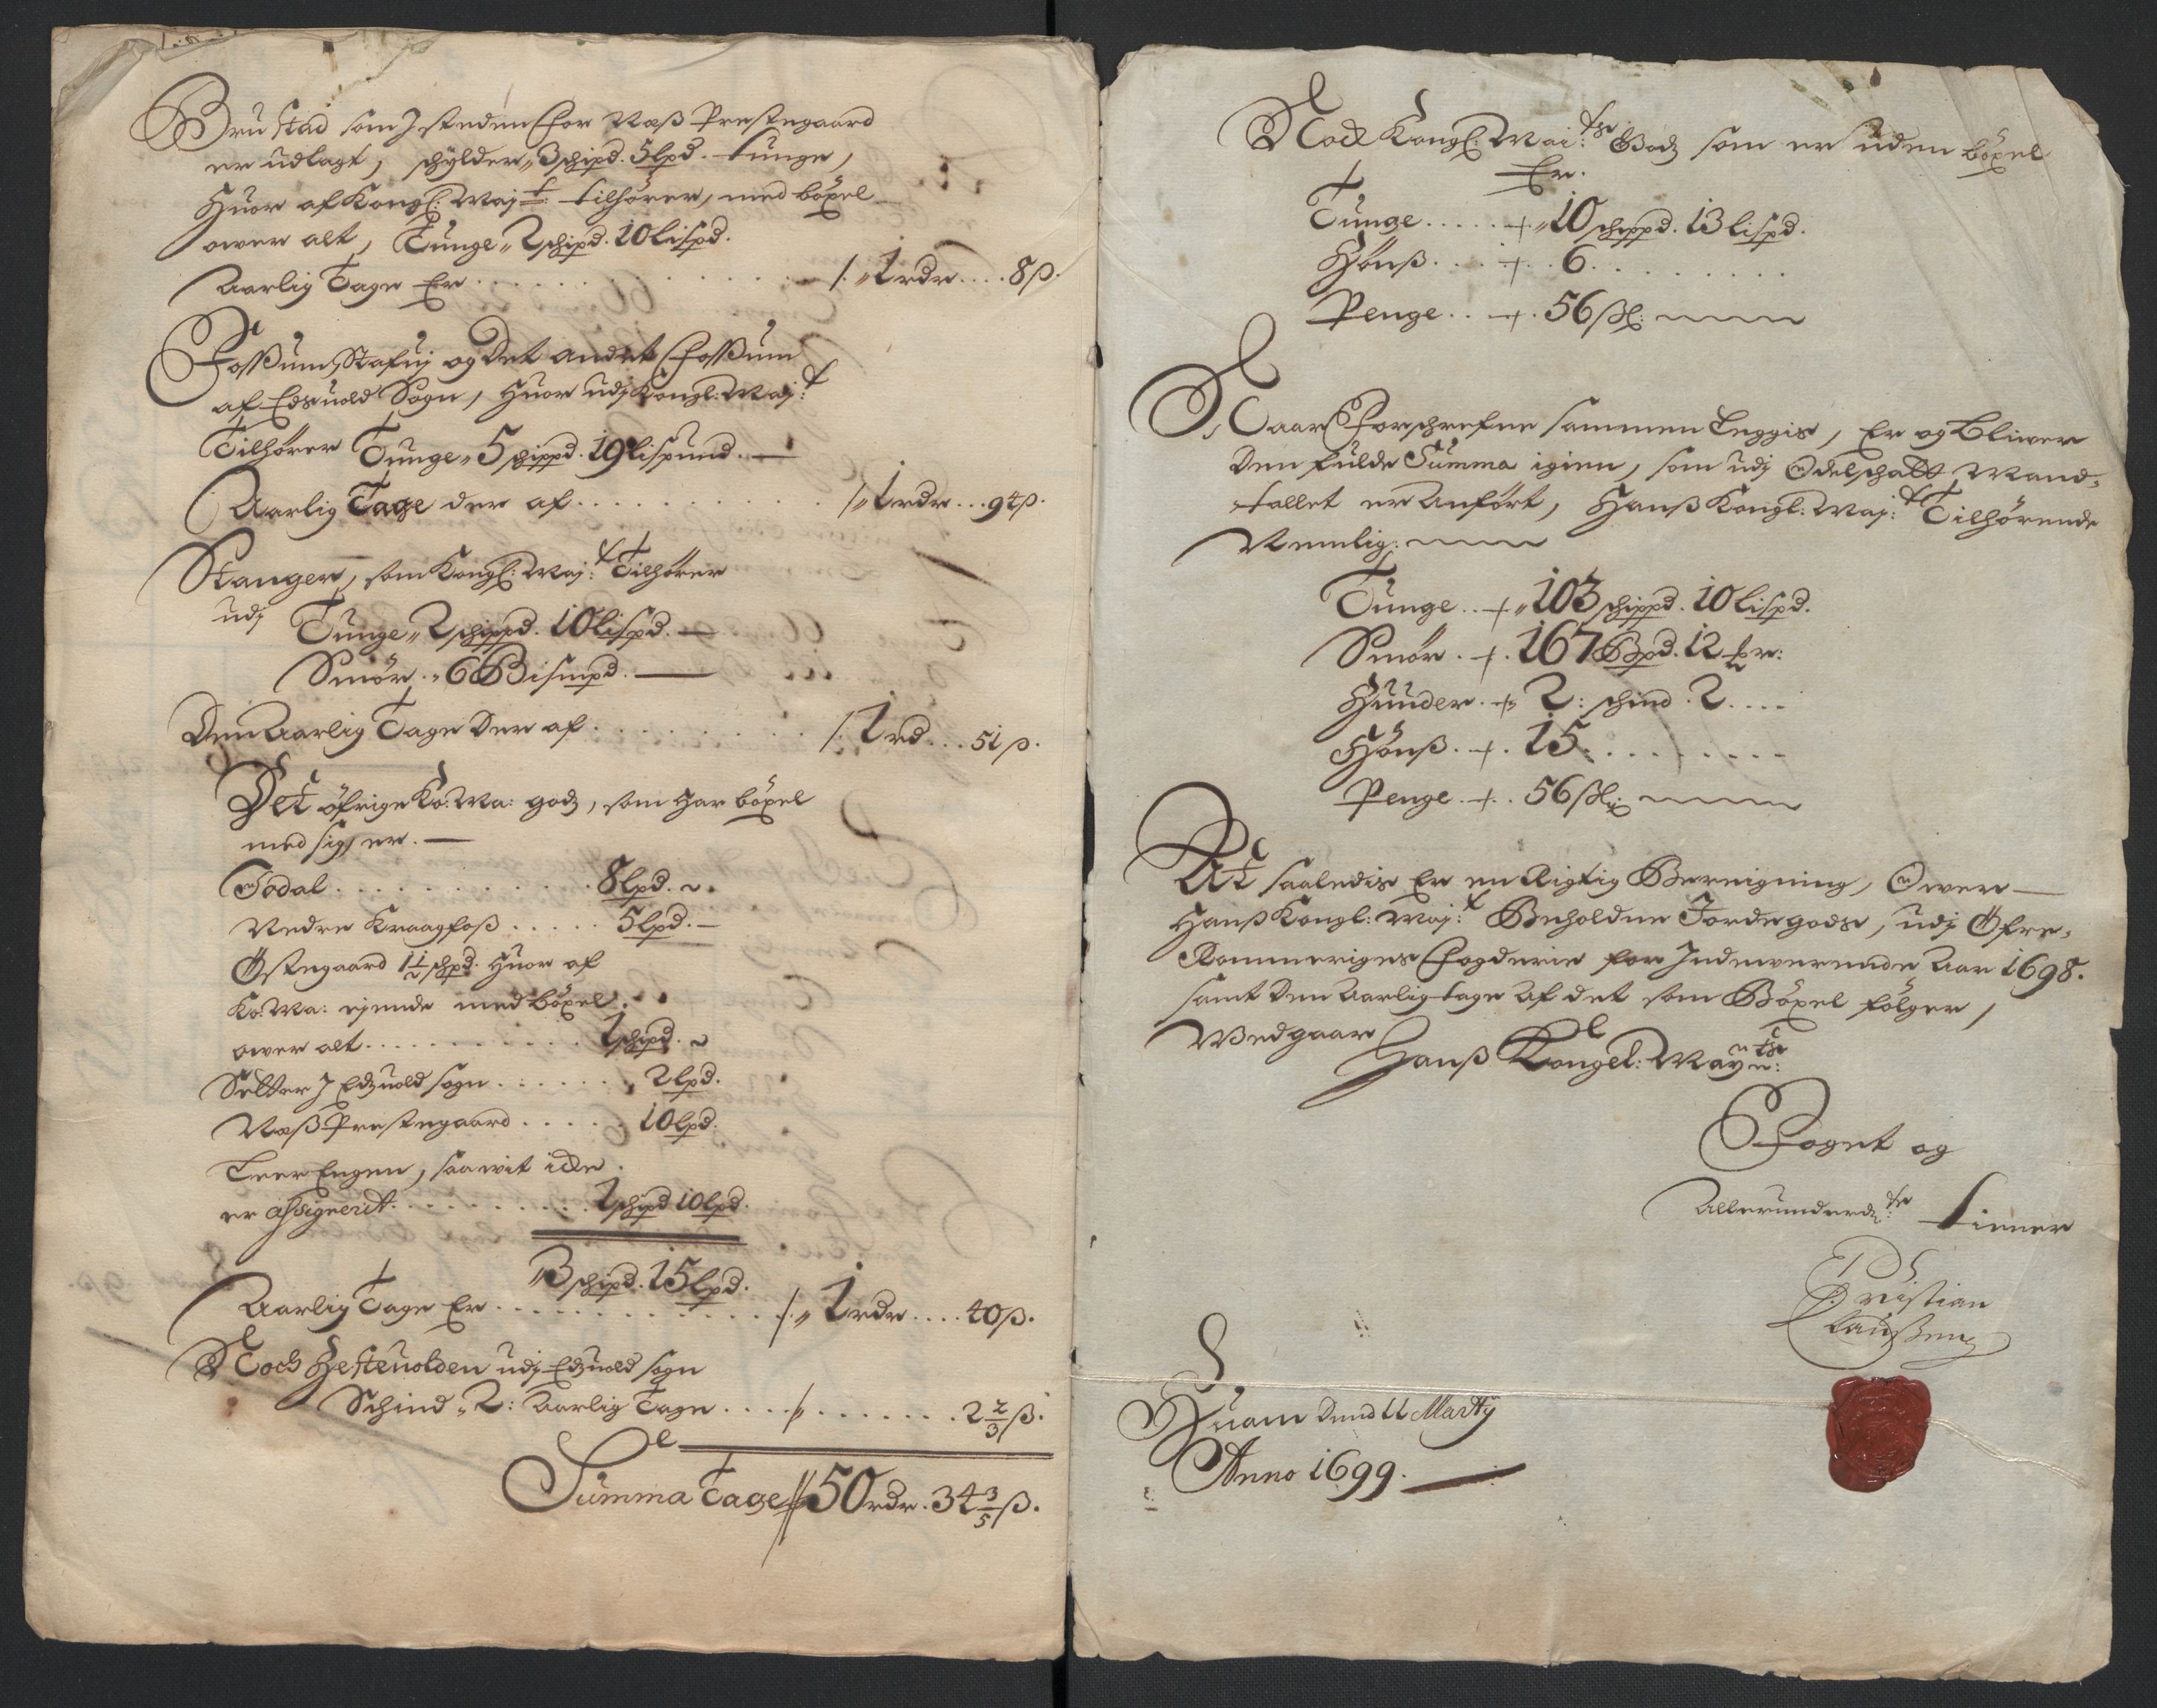 Brustad som J steden for Næss Prestegaard
er udlagt, schylder „ 3 schipd. 5 lpd. tunge,
Huor af Kongl: Maj:t tilhører, med böxel
ower alt, Tunge „ 2 schipd. 10 lispd.
Aarlig Tage Er . . . . . . /. „ 1 rdr . . . . 8 ß.
Fossum, Stafuj og Det andet Fossum
af Edsuold Sogn, Huor udj Kongl: Maj:t
Tilhører Tunge „ 5 schippd. 19 lispund. —
Aarlig Tage der af . . . . . . /„ 1 rdr . . . 94 ß.
Stanger, som Kongl: Maj:t Tilhører
udj Tunge „ 2 schippd. 10 lispd. —
Smör . „ 6 Bismpd. —
Den Aarlig Tage Der af . . . . . . /. 1 rd . . . 51 ß.
Det öfrige Ko: Ma: godz, som har böxel
med sig, er. —
Södal . . . . . . 8 lpd. ~.
Nedre Kraagfoss . . . . . 5 lpd. —
Östegaard 1 1/2 schpd. Huor af
Ko: Ma: ejende med böxel
ower alt . . . . . . 1 schipd. ~
Selter J Edzuold sogn . . . . . . 2 lpd.
Næss Prestegaard . . . . . 10 lpd.
Leer Engen, saawit icke
er assignerit . . . . . . 1 schipd 10 lpd.
„ 3 schipd. 15 lpd.
Aarlig Tage Er . . . . . . /. „ 1 rdr . . . . 40 ß.
Noch Hesteuolden udj Edzuold sogn
Schind „ 2: Aarlig Tage . . . . /. . . . . . . 2 2/3 ß.
Summa Tage // 50 rdr. 34 3/5 ß.
Noch Kongl: Mai:ts Godz som er uden böxel
Er.
Tunge . . . . . + „ 10 schippd. 13 lispd.
Hönss . . . + . . 6 . . . . . . . . .
Penge . . + . 56 ssl:
Naar Forschrefne sammen Leggis, Er og Bliwer
Den fulde Summa igien, som udj Odelschatt Mand-
tallet er Anfört, Hanss Kongl: Maj:t Tilhörende
Nemlig:
Tunge . . + „ 103 schippd. 10 lispd.
Smör . + . 167 Bpd. 12 #r:
Huuder . + „ 2: schind . 2 . . . .
Hönss . + . 15 . . . . . . . . .
Penge . + . . 56 ssl:
At saaledis Er en Rigtig Bereigning, Ower —
Hanss Kongl: Maj:t Beholdne Jordegods, udj Öfre-
Rommeriges Fogderie for Indeverende Aar 1698.
samt Den Aarlig tage Af det som Böxel følger,
Wedgaar
Hanss Kongel: May:ts
Foget og
Allerunderd:ste tiener
Christian
Claussen
Huam Dend 11 Martij
Anno 1699. —